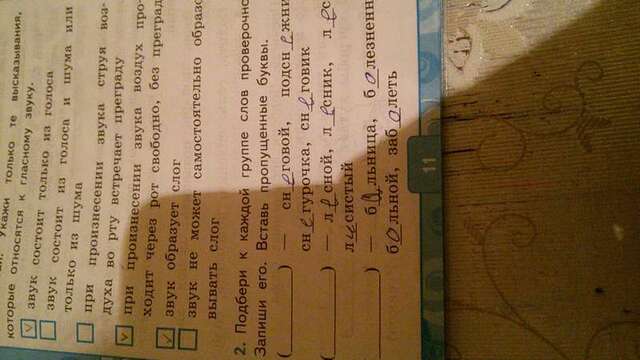 Укажи только те высказывания,
которые относятся к гласному звуку.
звук состоит только из голоса
звук состоит из голоса и шума или
только из шума
при произнесении звука струя воз-
духа во рту встречает преграду
при произнесении звука воздух про-
ходит через рот свободно, без преград
звук образует слог
звук не может самостоятельно образо
вывать слог
2. Подбери к каждой группе слов проверочно
Запиши его. Вставь пропущенные буквы.
( ) — снеговой, подснежни
снегурочка, снеговик
( ) — лесной, лесник, лес
лесистый
( ) — больница, болезненн
больной, заболеть
11